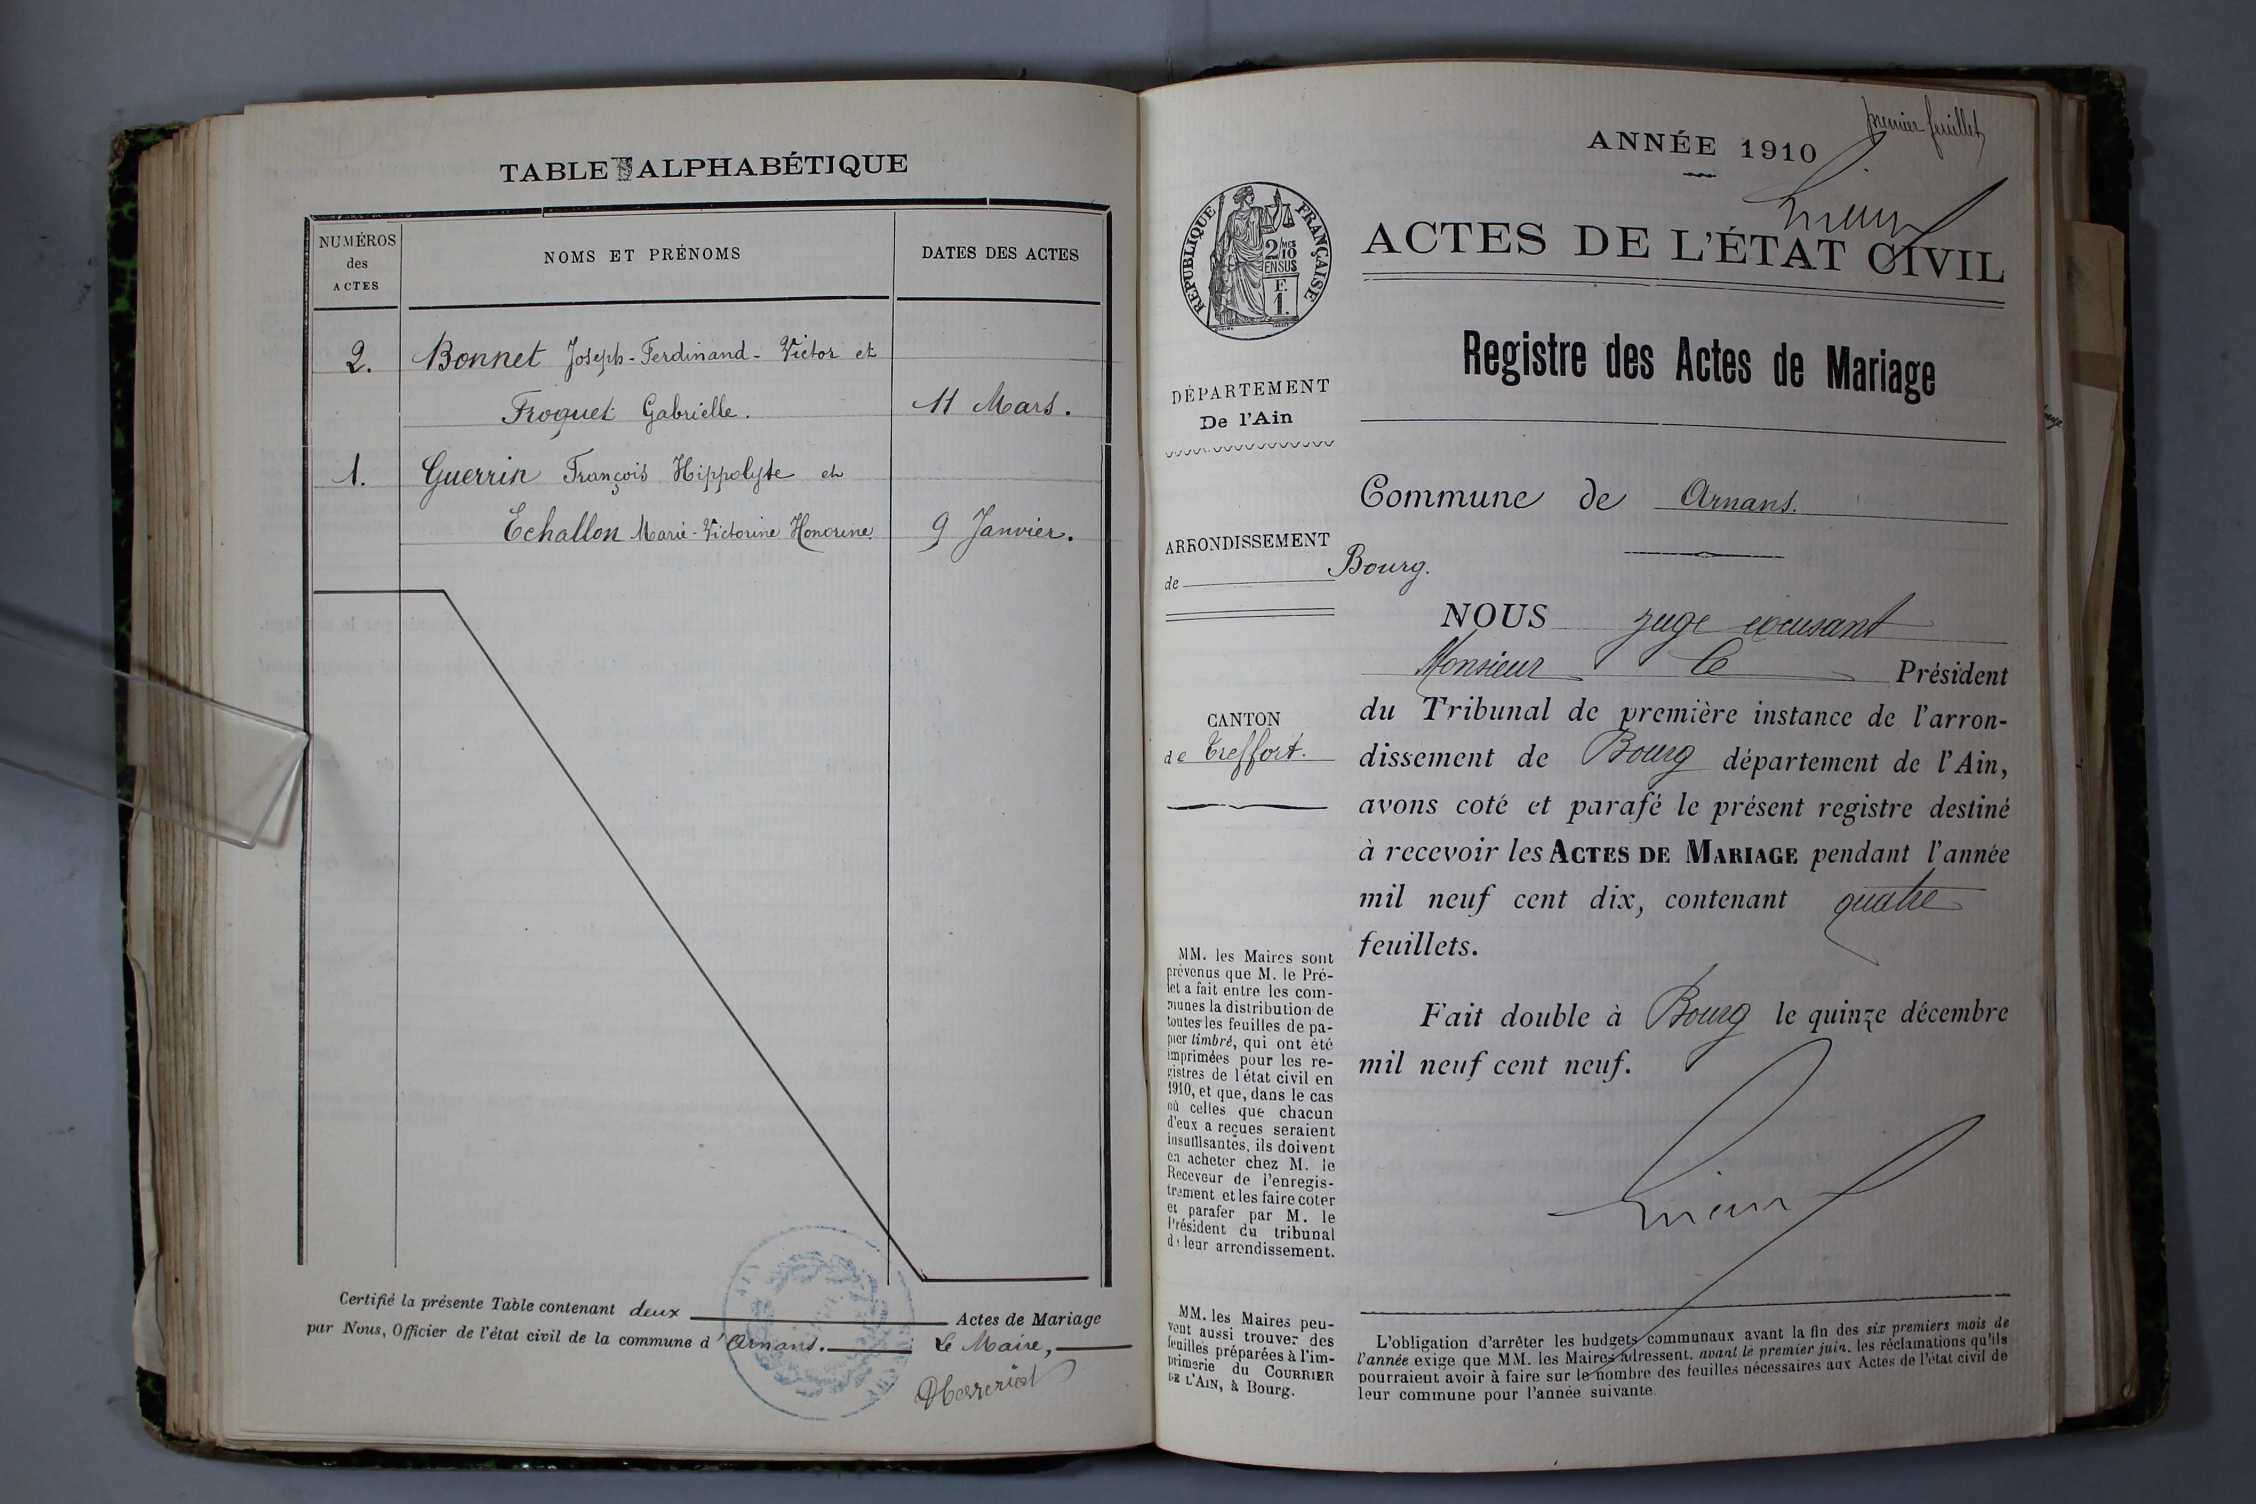 TABLE ALPHABÉTIQUE
NUMÉROS
des
ACTES
NOMS ET PRÉNOMS
DATES DES ACTES
2. Bonnet Joseph-Ferdinand-Victor et
Froquet Gabrielle. 11 Mars.
1. Guerrin François Hippolyte et
Echallon Marie-Victorine Honorine. 9 Janvier.
Certifié la présente Table contenant deux Actes de Mariage
par Nous, Officier de l'état civil de la commune d'Arnans. Le Maire,
premier feuillet
ANNÉE 1910
ACTES DE L'ÉTAT CIVIL
RÉPUBLIQUE FRANÇAISE
2/10 MES
EN SUS
F.
1.
Registre des Actes de Mariage
DÉPARTEMENT
De l'Ain
Commune de Arnans.
ARRONDISSEMENT
de Bourg.
CANTON
de Treffort.
NOUS juge excusant
Monsieur le Président
du Tribunal de première instance de l'arron-
dissement de Bourg département de l'Ain,
avons coté et parafé le présent registre destiné
à recevoir les ACTES DE MARIAGE pendant l'année
mil neuf cent dix, contenant quatre
feuillets.
Fait double à Bourg le quinze décembre
mil neuf cent neuf.
MM. les Maires sont
prévenus que M. le Pré-
fet a fait entre les com-
munes la distribution de
toutes les feuilles de pa-
pier timbré, qui ont été
imprimées pour les re-
gistres de l'état civil en
1910, et que, dans le cas
où celles que chacun
d'eux a reçues seraient
insuffisantes, ils doivent
en acheter chez M. le
Receveur de l'enregis-
trement et les faire coter
et parafer par M. le
Président du tribunal
de leur arrondissement.
MM. les Maires peu-
vent aussi trouver des
feuilles préparées à l'im-
primerie du COURRIER
DE L'AIN, à Bourg.
L'obligation d'arrêter les budgets communaux avant la fin des six premiers mois de
l'année exige que MM. les Maires adressent, avant le premier juin, les réclamations qu'ils
pourraient avoir à faire sur le nombre des feuilles nécessaires aux Actes de l'état civil de
leur commune pour l'année suivante.